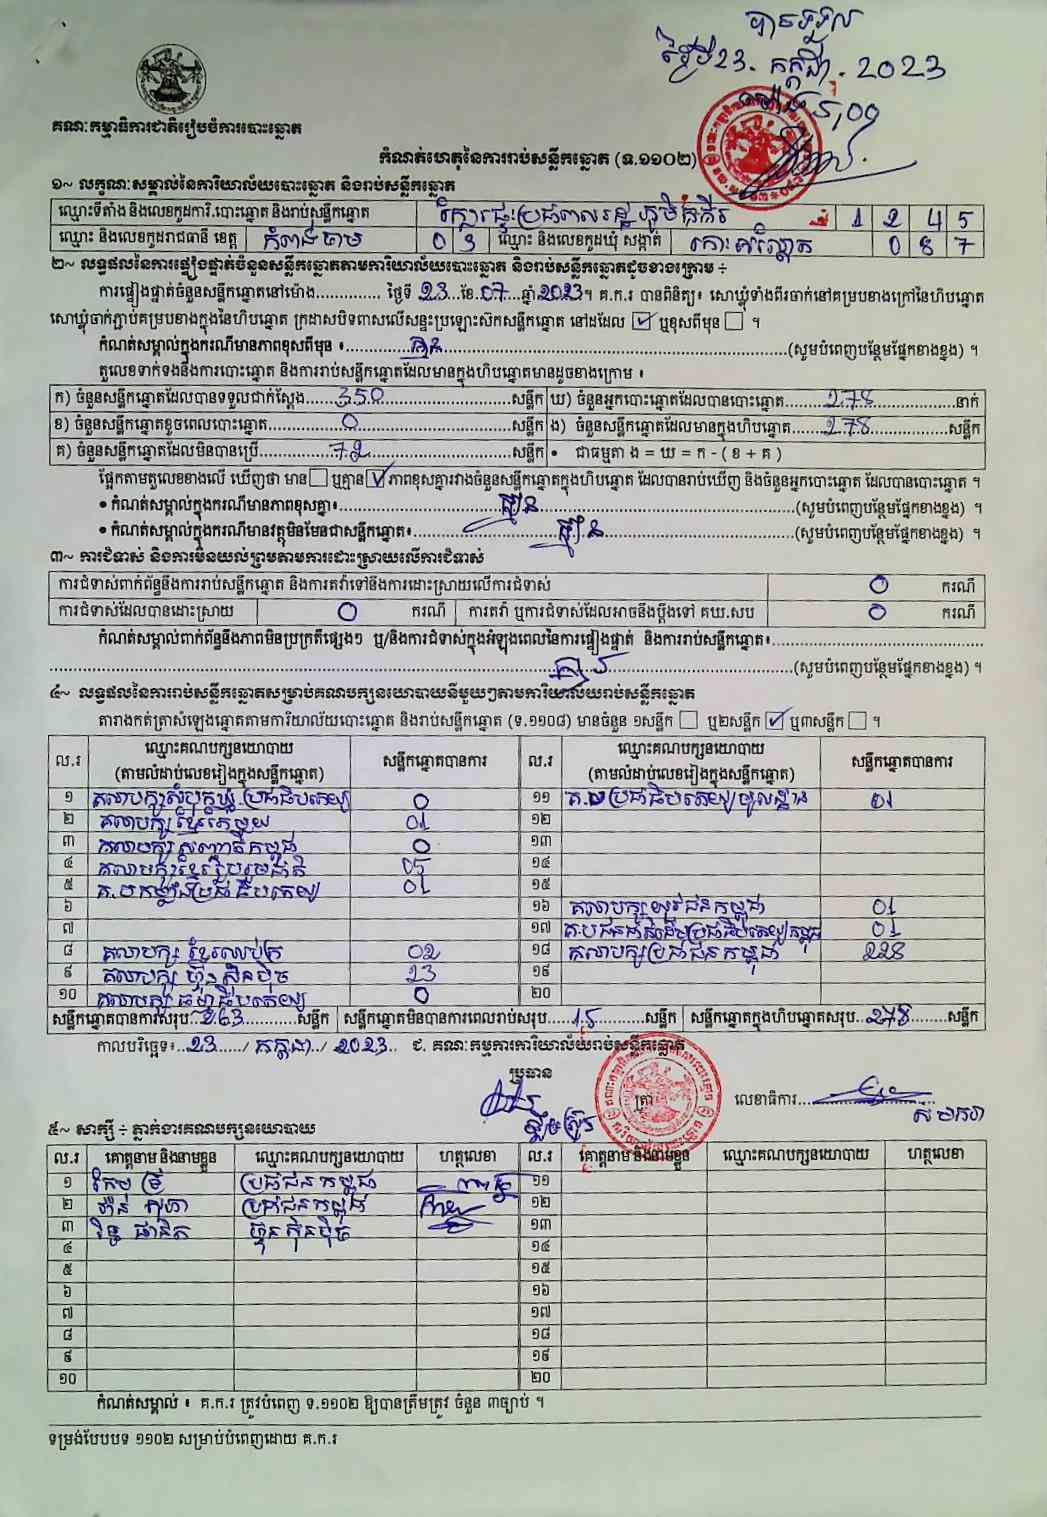 បានទទួល
ថ្ងៃទី 23. កក្កដា. 2023
គណៈកម្មាធិការជាតិរៀបចំការបោះឆ្នោត
កំណត់ហេតុនៃការរាប់សន្លឹកឆ្នោត (ទ.១១០២)
១~ លក្ខណៈសម្គាល់នៃការិយាល័យបោះឆ្នោត និងរាប់សន្លឹកឆ្នោត
ឈ្មោះទីតាំង និងលេខកូដការិ.បោះឆ្នោត និងរាប់សន្លឹកឆ្នោត 1 2 4 5
ឈ្មោះ និងលេខកូដរាជធានី ខេត្ត កំពង់ចាម 0 3 ឈ្មោះ និងលេខកូដឃុំ សង្កាត់ 0 8 7
២~ លទ្ធផលនៃការផ្ទៀងផ្ទាត់ចំនួនសន្លឹកឆ្នោតតាមការិយាល័យបោះឆ្នោត និងរាប់សន្លឹកឆ្នោតដូចខាងក្រោម ÷
ការផ្ទៀងផ្ទាត់ចំនួនសន្លឹកឆ្នោតនៅម៉ោង.............. ថ្ងៃទី 23...ខែ.07...ឆ្នាំ.2023។ គ.ក.រ បានពិនិត្យ៖ សោឃ្លុំទាំងពីរចាក់នៅគម្របខាងក្រៅនៃហិបឆ្នោត
សោឃ្លុំចាក់ភ្ជាប់គម្របខាងក្នុងនៃហិបឆ្នោត ក្រដាសបិទពាសលើសន្ទះប្រឡោះស៊កសន្លឹកឆ្នោត នៅដដែល ☑ ឬខុសពីមុន ☐ ។
កំណត់សម្គាល់ក្នុងករណីមានភាពខុសពីមុន ៖ គ្មាន (សូមបំពេញបន្ថែមផ្នែកខាងខ្នង) ។
តួលេខទាក់ទងនឹងការបោះឆ្នោត និងការរាប់សន្លឹកឆ្នោតដែលមានក្នុងហិបឆ្នោតមានដូចខាងក្រោម ៖
ក) ចំនួនសន្លឹកឆ្នោតដែលបានទទួលជាក់ស្តែង 350 សន្លឹក ឃ) ចំនួនអ្នកបោះឆ្នោតដែលបានបោះឆ្នោត 278 នាក់
ខ) ចំនួនសន្លឹកឆ្នោតខូចពេលបោះឆ្នោត 0 សន្លឹក ង) ចំនួនសន្លឹកឆ្នោតដែលមានក្នុងហិបឆ្នោត 278 សន្លឹក
គ) ចំនួនសន្លឹកឆ្នោតដែលមិនបានប្រើ 72 សន្លឹក • ជាធម្មតា ង = ឃ = ក - ( ខ + គ )
ផ្អែកតាមតួលេខខាងលើ ឃើញថា មាន ☐ ឬគ្មាន ☑ ភាពខុសគ្នារវាងចំនួនសន្លឹកឆ្នោតក្នុងហិបឆ្នោត ដែលបានរាប់ឃើញ និងចំនួនអ្នកបោះឆ្នោត ដែលបានបោះឆ្នោត ។
• កំណត់សម្គាល់ក្នុងករណីមានភាពខុសគ្នា៖ គ្មាន (សូមបំពេញបន្ថែមផ្នែកខាងខ្នង) ។
• កំណត់សម្គាល់ក្នុងករណីមានវត្ថុមិនមែនជាសន្លឹកឆ្នោត៖ គ្មាន (សូមបំពេញបន្ថែមផ្នែកខាងខ្នង) ។
៣~ ការជំទាស់ និងការមិនយល់ព្រមតាមការដោះស្រាយលើការជំទាស់
ការជំទាស់ពាក់ព័ន្ធនឹងការរាប់សន្លឹកឆ្នោត និងការតវ៉ាទៅនឹងការដោះស្រាយលើការជំទាស់ 0 ករណី
ការជំទាស់ដែលបានដោះស្រាយ 0 ករណី ការតវ៉ា ឬការជំទាស់ដែលអាចនឹងប្តឹងទៅ គឃ.សប 0 ករណី
កំណត់សម្គាល់ពាក់ព័ន្ធនឹងភាពមិនប្រក្រតីផ្សេងៗ ឬ/និងការជំទាស់ក្នុងអំឡុងពេលនៃការផ្ទៀងផ្ទាត់ និងការរាប់សន្លឹកឆ្នោត៖
គ្មាន (សូមបំពេញបន្ថែមផ្នែកខាងខ្នង) ។
៤~ លទ្ធផលនៃការរាប់សន្លឹកឆ្នោតសម្រាប់គណបក្សនយោបាយនីមួយៗតាមការិយាល័យរាប់សន្លឹកឆ្នោត
តារាងកត់ត្រាសំឡេងឆ្នោតតាមការិយាល័យបោះឆ្នោត និងរាប់សន្លឹកឆ្នោត (ទ.១១០៨) មានចំនួន ១សន្លឹក ☐ ឬ២សន្លឹក ☑ ឬ៣សន្លឹក ☐ ។
ល.រ ឈ្មោះគណបក្សនយោបាយ (តាមលំដាប់លេខរៀងក្នុងសន្លឹកឆ្នោត) សន្លឹកឆ្នោតបានការ ល.រ ឈ្មោះគណបក្សនយោបាយ (តាមលំដាប់លេខរៀងក្នុងសន្លឹកឆ្នោត) សន្លឹកឆ្នោតបានការ
១ គណបក្សសំបុកឃ្មុំប្រជាធិបតេយ្យ 0 ១១ គ.ប ប្រជាធិបតេយ្យមូលដ្ឋាន 01
២ គណបក្សខ្មែរតែមួយ 01 ១២
៣ គណបក្សសញ្ជាតិកម្ពុជា 0 ១៣
៤ គណបក្សខ្មែររួបរួមជាតិ 05 ១៤
៥ គ.បកម្លាំងប្រជាធិបតេយ្យ 01 ១៥
៦ ១៦ គណបក្សយុវជនកម្ពុជា 01
៧ ១៧ គ.បជនជាតិដើមប្រជាធិបតេយ្យកម្ពុជា 01
៨ គណបក្សខ្មែរឈប់ក្រ 02 ១៨ គណបក្សប្រជាជនកម្ពុជា 228
៩ គណបក្សហ៊្វុនស៊ិនប៉ិច 23 ១៩
១០ គណបក្សធម្មាធិបតេយ្យ 0 ២០
សន្លឹកឆ្នោតបានការសរុប 263 សន្លឹក សន្លឹកឆ្នោតមិនបានការពេលរាប់សរុប 15 សន្លឹក សន្លឹកឆ្នោតក្នុងហិបឆ្នោតសរុប 278 សន្លឹក
កាលបរិច្ឆេទ៖ 23 / កក្កដា / 2023 ជ. គណៈកម្មការការិយាល័យរាប់សន្លឹកឆ្នោត
ប្រធាន ត្រា លេខាធិការ
៥~ សាក្សី ÷ ភ្នាក់ងារគណបក្សនយោបាយ
ល.រ គោត្តនាម និងនាមខ្លួន ឈ្មោះគណបក្សនយោបាយ ហត្ថលេខា ល.រ គោត្តនាម និងនាមខ្លួន ឈ្មោះគណបក្សនយោបាយ ហត្ថលេខា
១ ប្រជាជនកម្ពុជា ១១
២ ប្រជាជនកម្ពុជា ១២
៣ ហ៊្វុនស៊ិនប៉ិច ១៣
៤ ១៤
៥ ១៥
៦ ១៦
៧ ១៧
៨ ១៨
៩ ១៩
១០ ២០
កំណត់សម្គាល់ ៖ គ.ក.រ ត្រូវបំពេញ ទ.១១០២ ឱ្យបានត្រឹមត្រូវ ចំនួន ៣ច្បាប់ ។
ទម្រង់បែបបទ ១១០២ សម្រាប់បំពេញដោយ គ.ក.រ